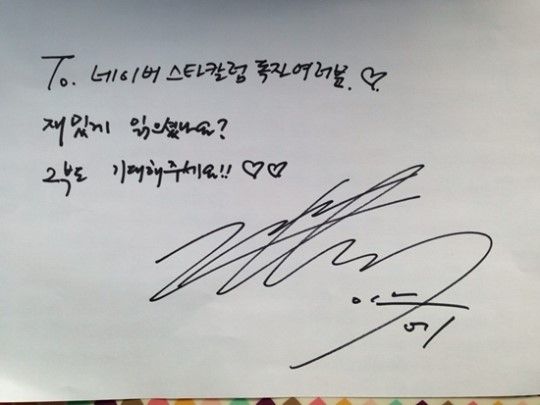 To. 네이버 스타칼럼 독자여러분. ♡
재밌게 읽으셨나요?
2부도 기대해주세요!! ♡♡